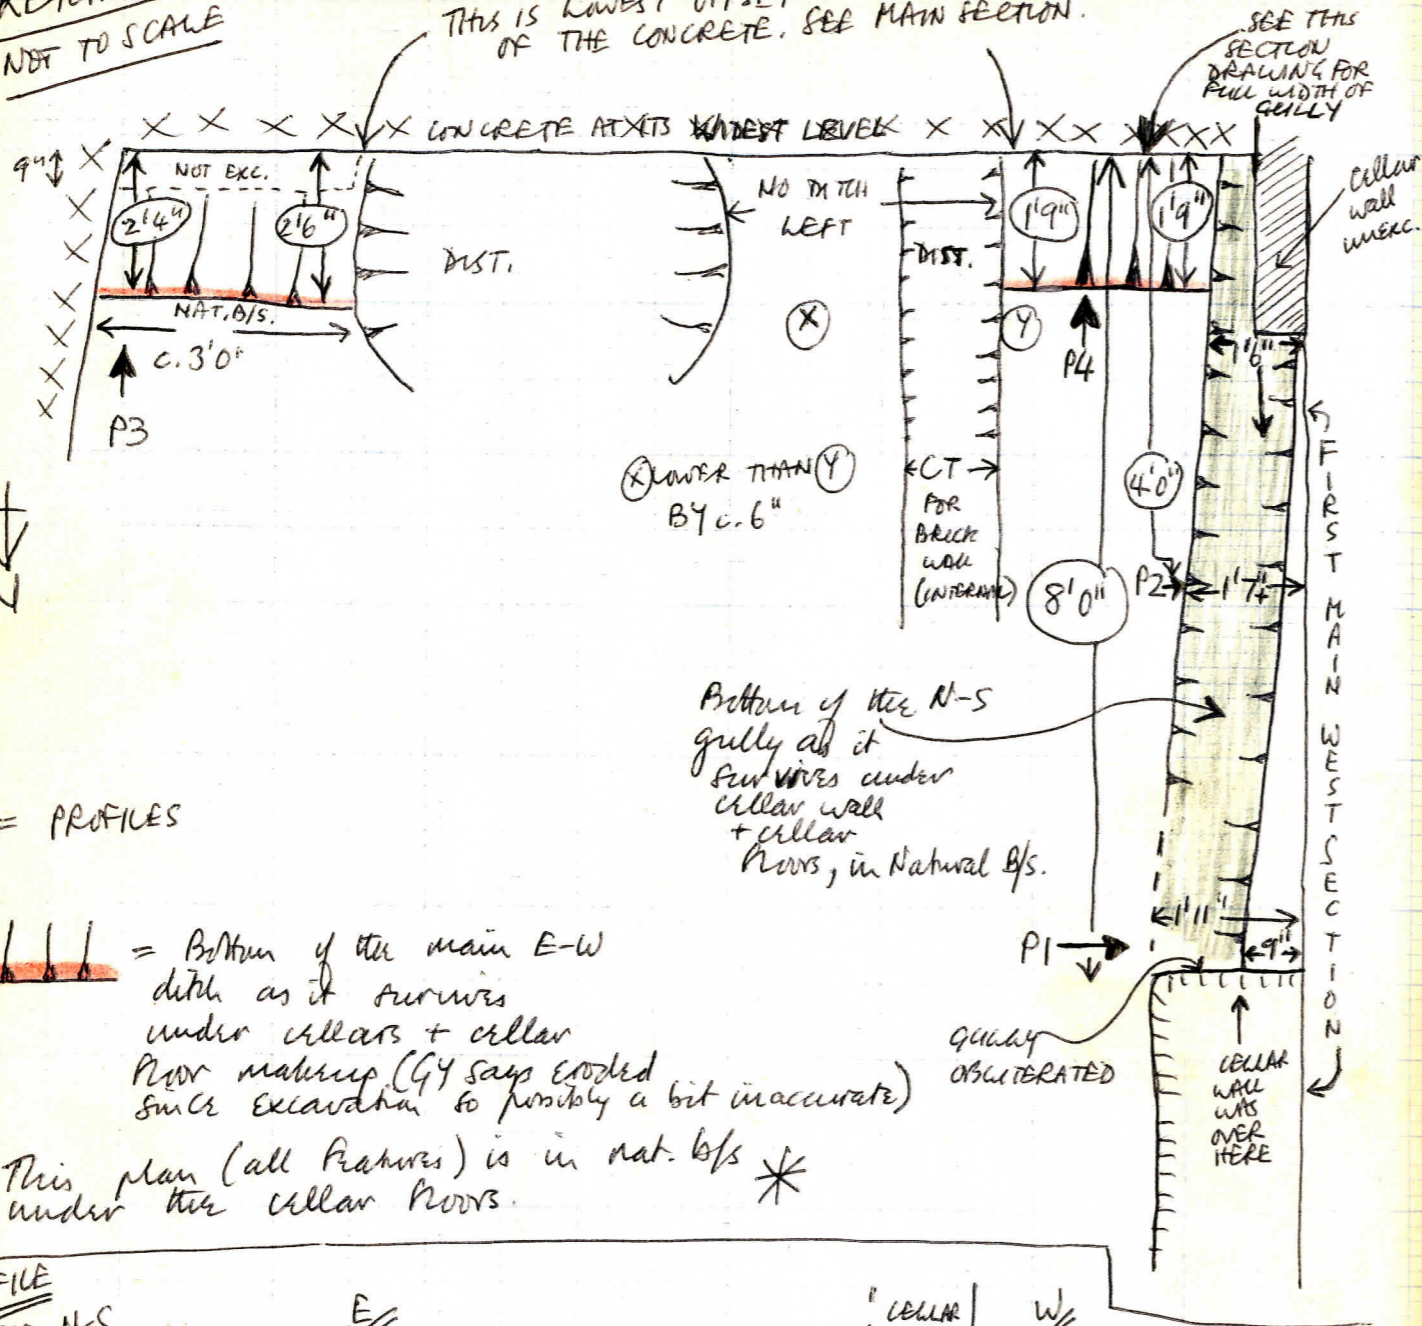 NOT TO SCALE
THIS IS LOWEST OFFSET
OF THE CONCRETE. SEE MAIN SECTION.
SEE THIS
SECTION
DRAWING FOR
FULL WIDTH OF
GULLY
X X X X X CONCRETE AT ITS WIDEST LEVEL X X X X X X X
9"
NOT EXC.
2'4"
2'6"
NAT. B/S.
c. 3'0"
P3
DIST.
NO DITCH
LEFT
X
DIST.
1'9"
1'9"
Y
P4
Cellar
wall
unexc.
1'6"
X LOWER THAN Y
BY c. 6"
CT
FOR
BRICK
WALL
(INTERNAL)
4'0"
8'0"
P2
1'7"
FIRST MAIN WEST SECTION
Bottom of the N-S
gully as it
survives under
cellar wall
+ cellar
floors, in Natural B/S.
= PROFILES
1'11"
P1
9"
= Bottom of the main E-W
ditch as it survives
under cellars + cellar
floor makeup (GY says eroded
since excavation so possibly a bit inaccurate)
GULLY
OBLITERATED
CELLAR
WALL
WAS
OVER
HERE
This plan (all features) is in nat. b/s
under the cellar floors.
N-S
E
CELLAR
W